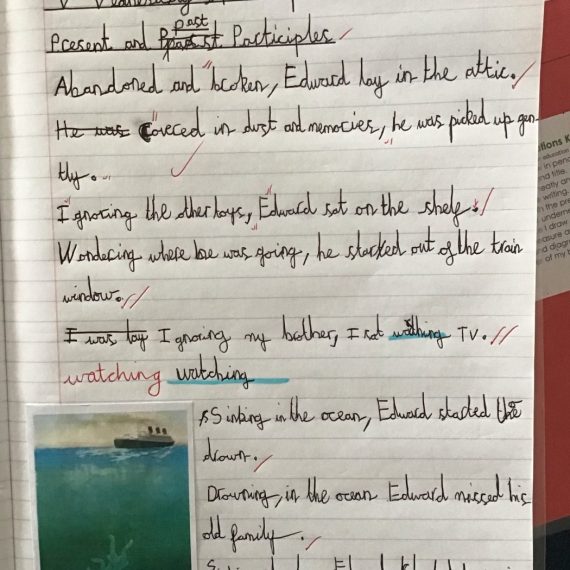 Present and Past Participles
Abandoned and broken, Edward lay in the attic.
He was Covered in dust and memories, he was picked up gen-
tly.
Ignoring the other toys, Edward sat on the shelf.
Wondering where he was going, he starked out of the train
window.
I was lay Ignoring my brother, I sat wathing TV.
watching watching
Sinking in the ocean, Edward started the
drown.
Drowning, in the ocean Edward missed his
old family.
tions K
education
in penc
nd title.
eatly an
writing.
n the pre
underne
I draw
asure a
d diagr
of my b